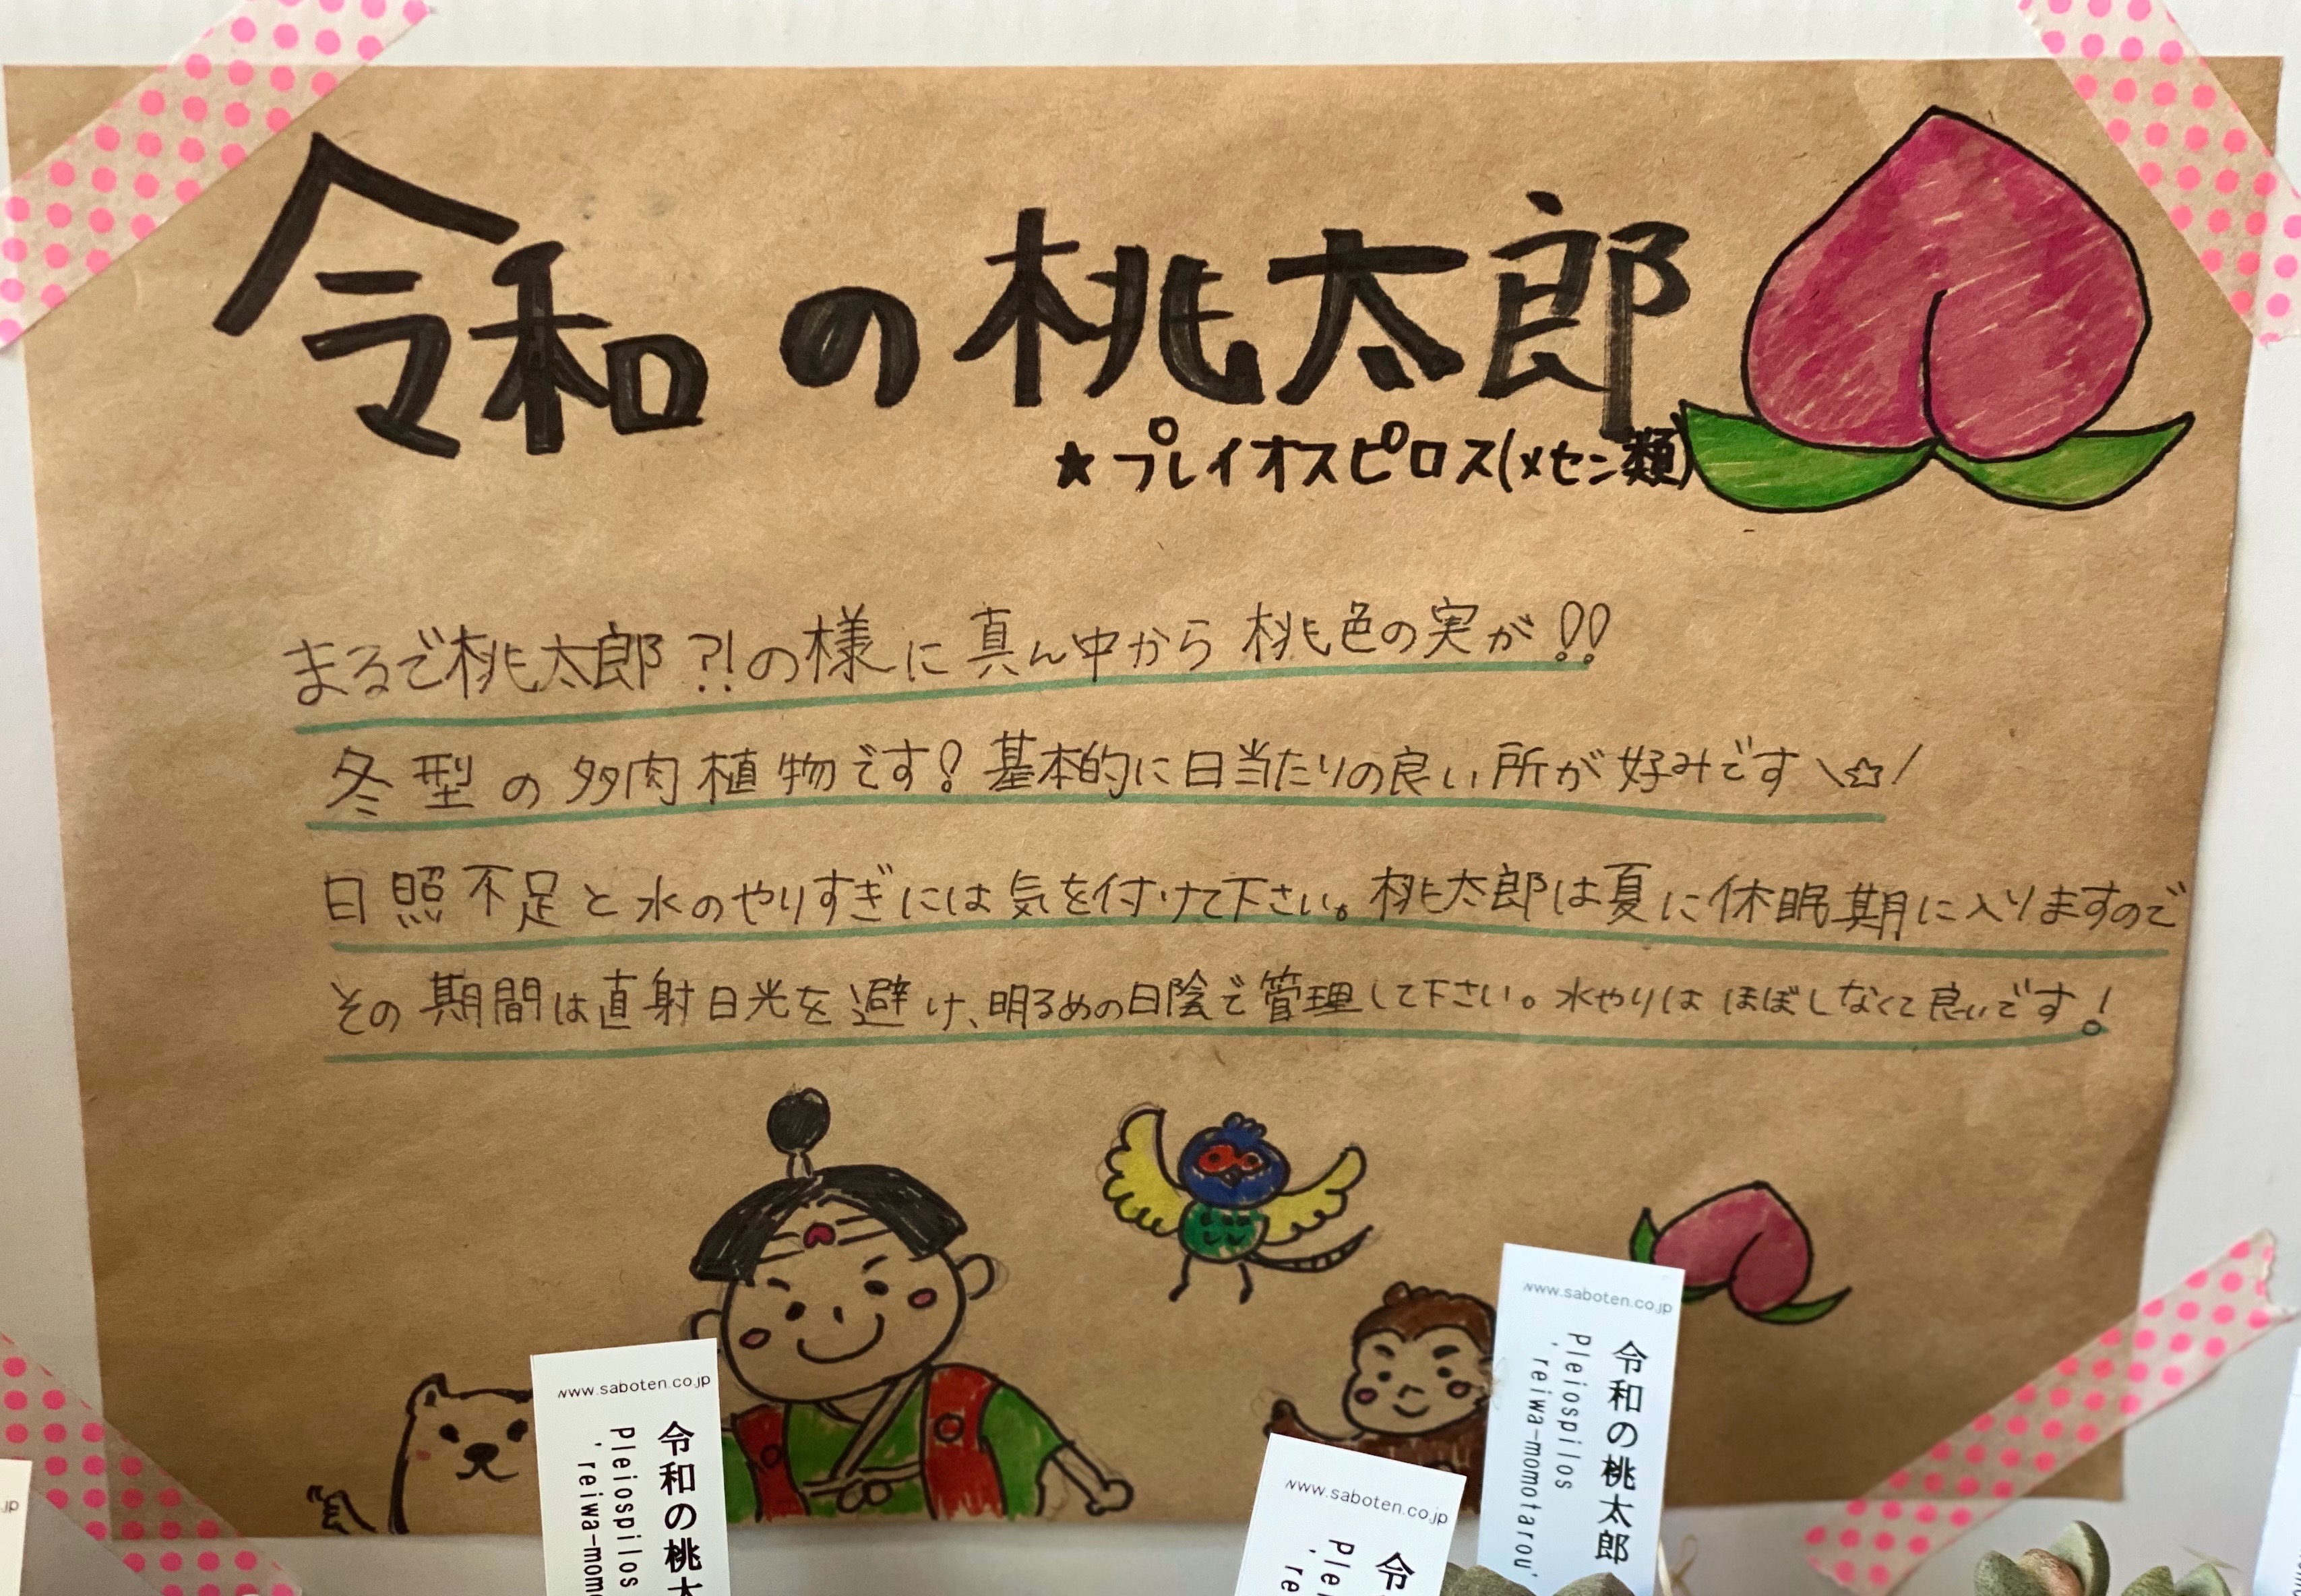 令和の桃太郎
★プレイオスピロス(メセン類)
まるで桃太郎?!の様に真ん中から桃色の実が!!
冬型の多肉植物です!基本的に日当たりの良い所が好みです\☆/
日照不足と水のやりすぎには気を付けて下さい。桃太郎は夏に休眠期に入りますので
その期間は直射日光を避け、明るめの日陰で管理して下さい。水やりはほぼしなくて良いです!
www.saboten.co.jp
令和の桃太郎
Pleiospilos
'reiwa-momotarou'
www.saboten.co.jp
令和の桃太
Pleiospilos
'reiwa-mom
www.saboten.co.jp
令
Plei
're
.jp